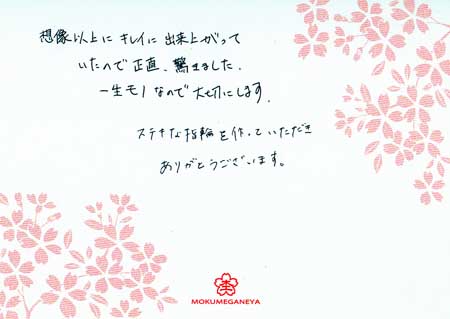 想像以上に キレイに 出来上がって
いたので 正直、驚きました.
一生モノなので 大切にします.
ステキな指輪を作っていただき
ありがとうございます。
MOKUMEGANEYA